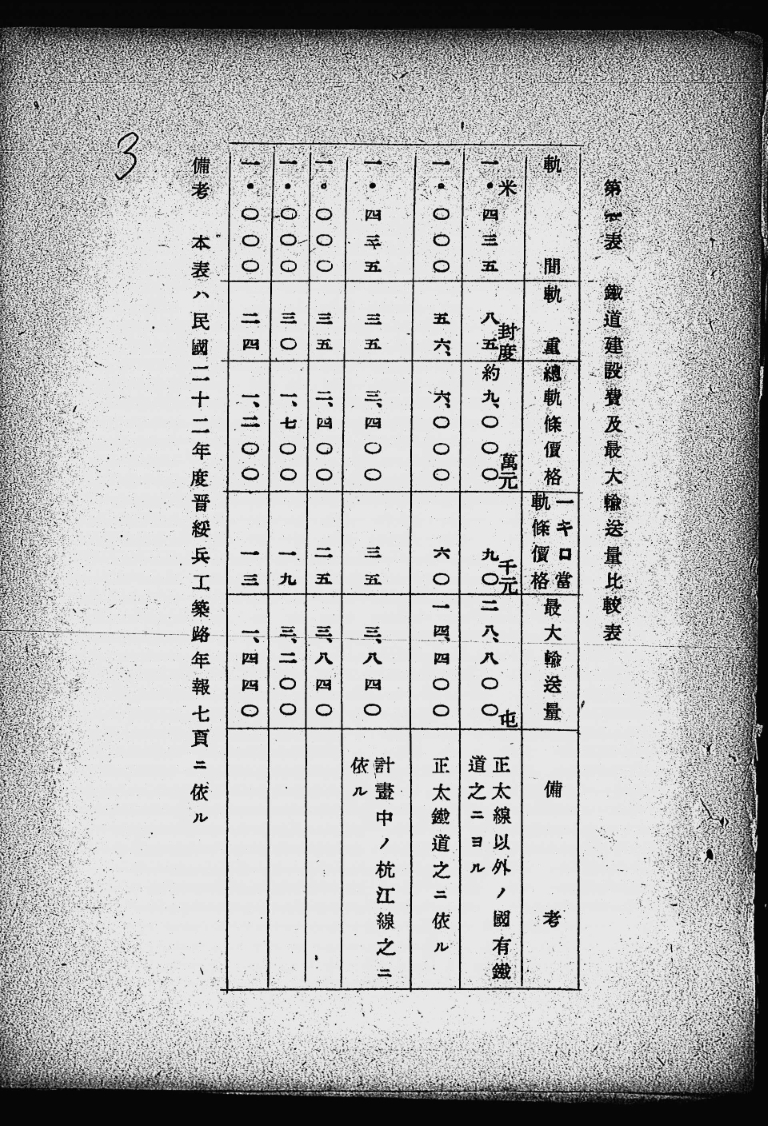 第一表　鐵道建設費及最大輸送量比較表
軌間
軌重
總軌條價格
一キロ當
軌條價格
最大輸送量
備考
一・四三五
米
八五
封度
約九、〇〇〇
萬元
九〇
千元
二八、八〇〇
屯
正太線以外ノ國有鐵
道之ニヨル
一・〇〇〇
五六、
六、〇〇〇
六〇
一四、四〇〇
正太鐵道之ニ依ル
一・四三五
三五
三、四〇〇
三五
三、八四〇
計畫中ノ杭江線之ニ
依ル
一・〇〇〇
三五
二、四〇〇
二五
三、八四〇
一・〇〇〇
三〇
一、七〇〇
一九
三、二〇〇
一・〇〇〇
二四
一、二〇〇
一三
一、四四〇
備考　本表ハ民國二十二年度晋綏兵工築路年報七頁ニ依ル
3